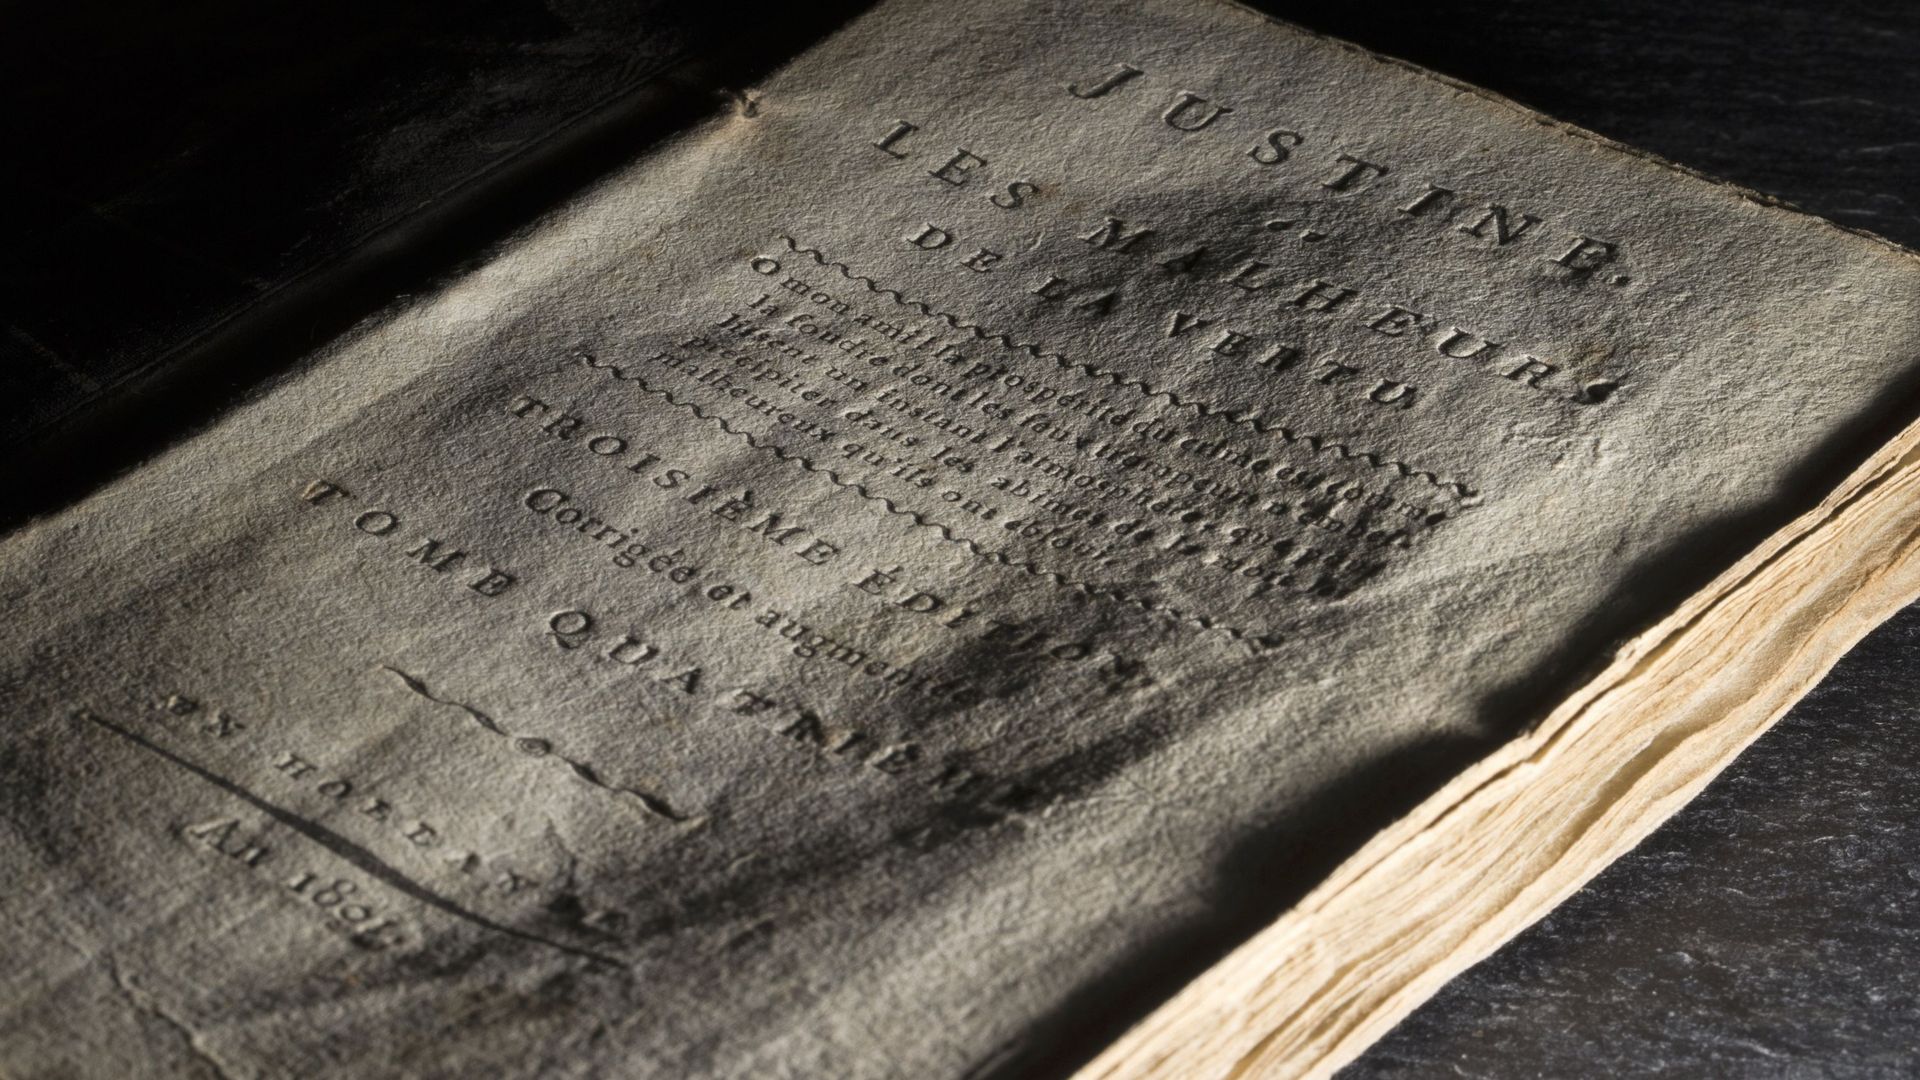 JUSTINE,
OU
LES MALHEURS
DE LA VERTU
O mon ami! la prospérité du crime est comme
la foudre dont les feux trompeurs n'embel-
lissent un instant l'atmosphère, que pour
précipiter dans les abîmes de la mort le
malheureux qu'ils ont ébloui.
TROISIÈME ÉDITION
Corrigée et augmentée
TOME QUATRIÈME
EN HOLLANDE
An 1801